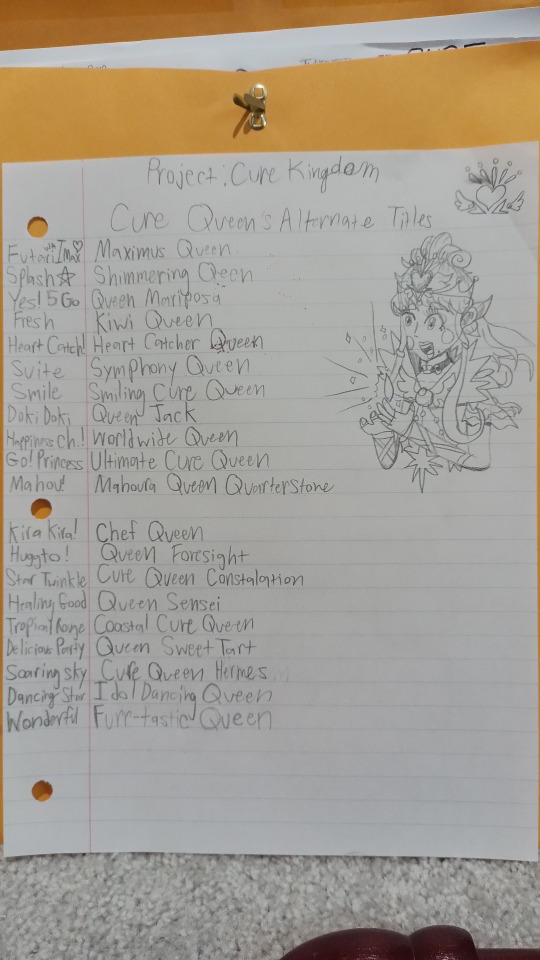 Project: Cure Kingdom
Cure Queen's Alternate Titles
Futari wa Max♡ Maximus Queen
Splash☆ Shimmering Qeen
Yes! 5 Go Queen Mariposa
Fresh Kiwi Queen
Heart Catch! Heart Catcher Queen
Suite Symphony Queen
Smile Smiling Cure Queen
Doki Doki Queen Jack
Happiness Ch.! Worldwide Queen
Go! Princess Ultimate Cure Queen
Mahou! Mahoura Queen Quarterstone
Kira Kira! Chef Queen
Huggto! Queen Foresight
Star Twinkle Cure Queen Constalation
Healing Good Queen Sensei
Tropical Rouge Coastal Cure Queen
Delicious Party Queen Sweet Tart
Soaring sky Cure Queen Hermes
Dancing Star Idol Dancing Queen
Wonderful Furr-tastic Queen